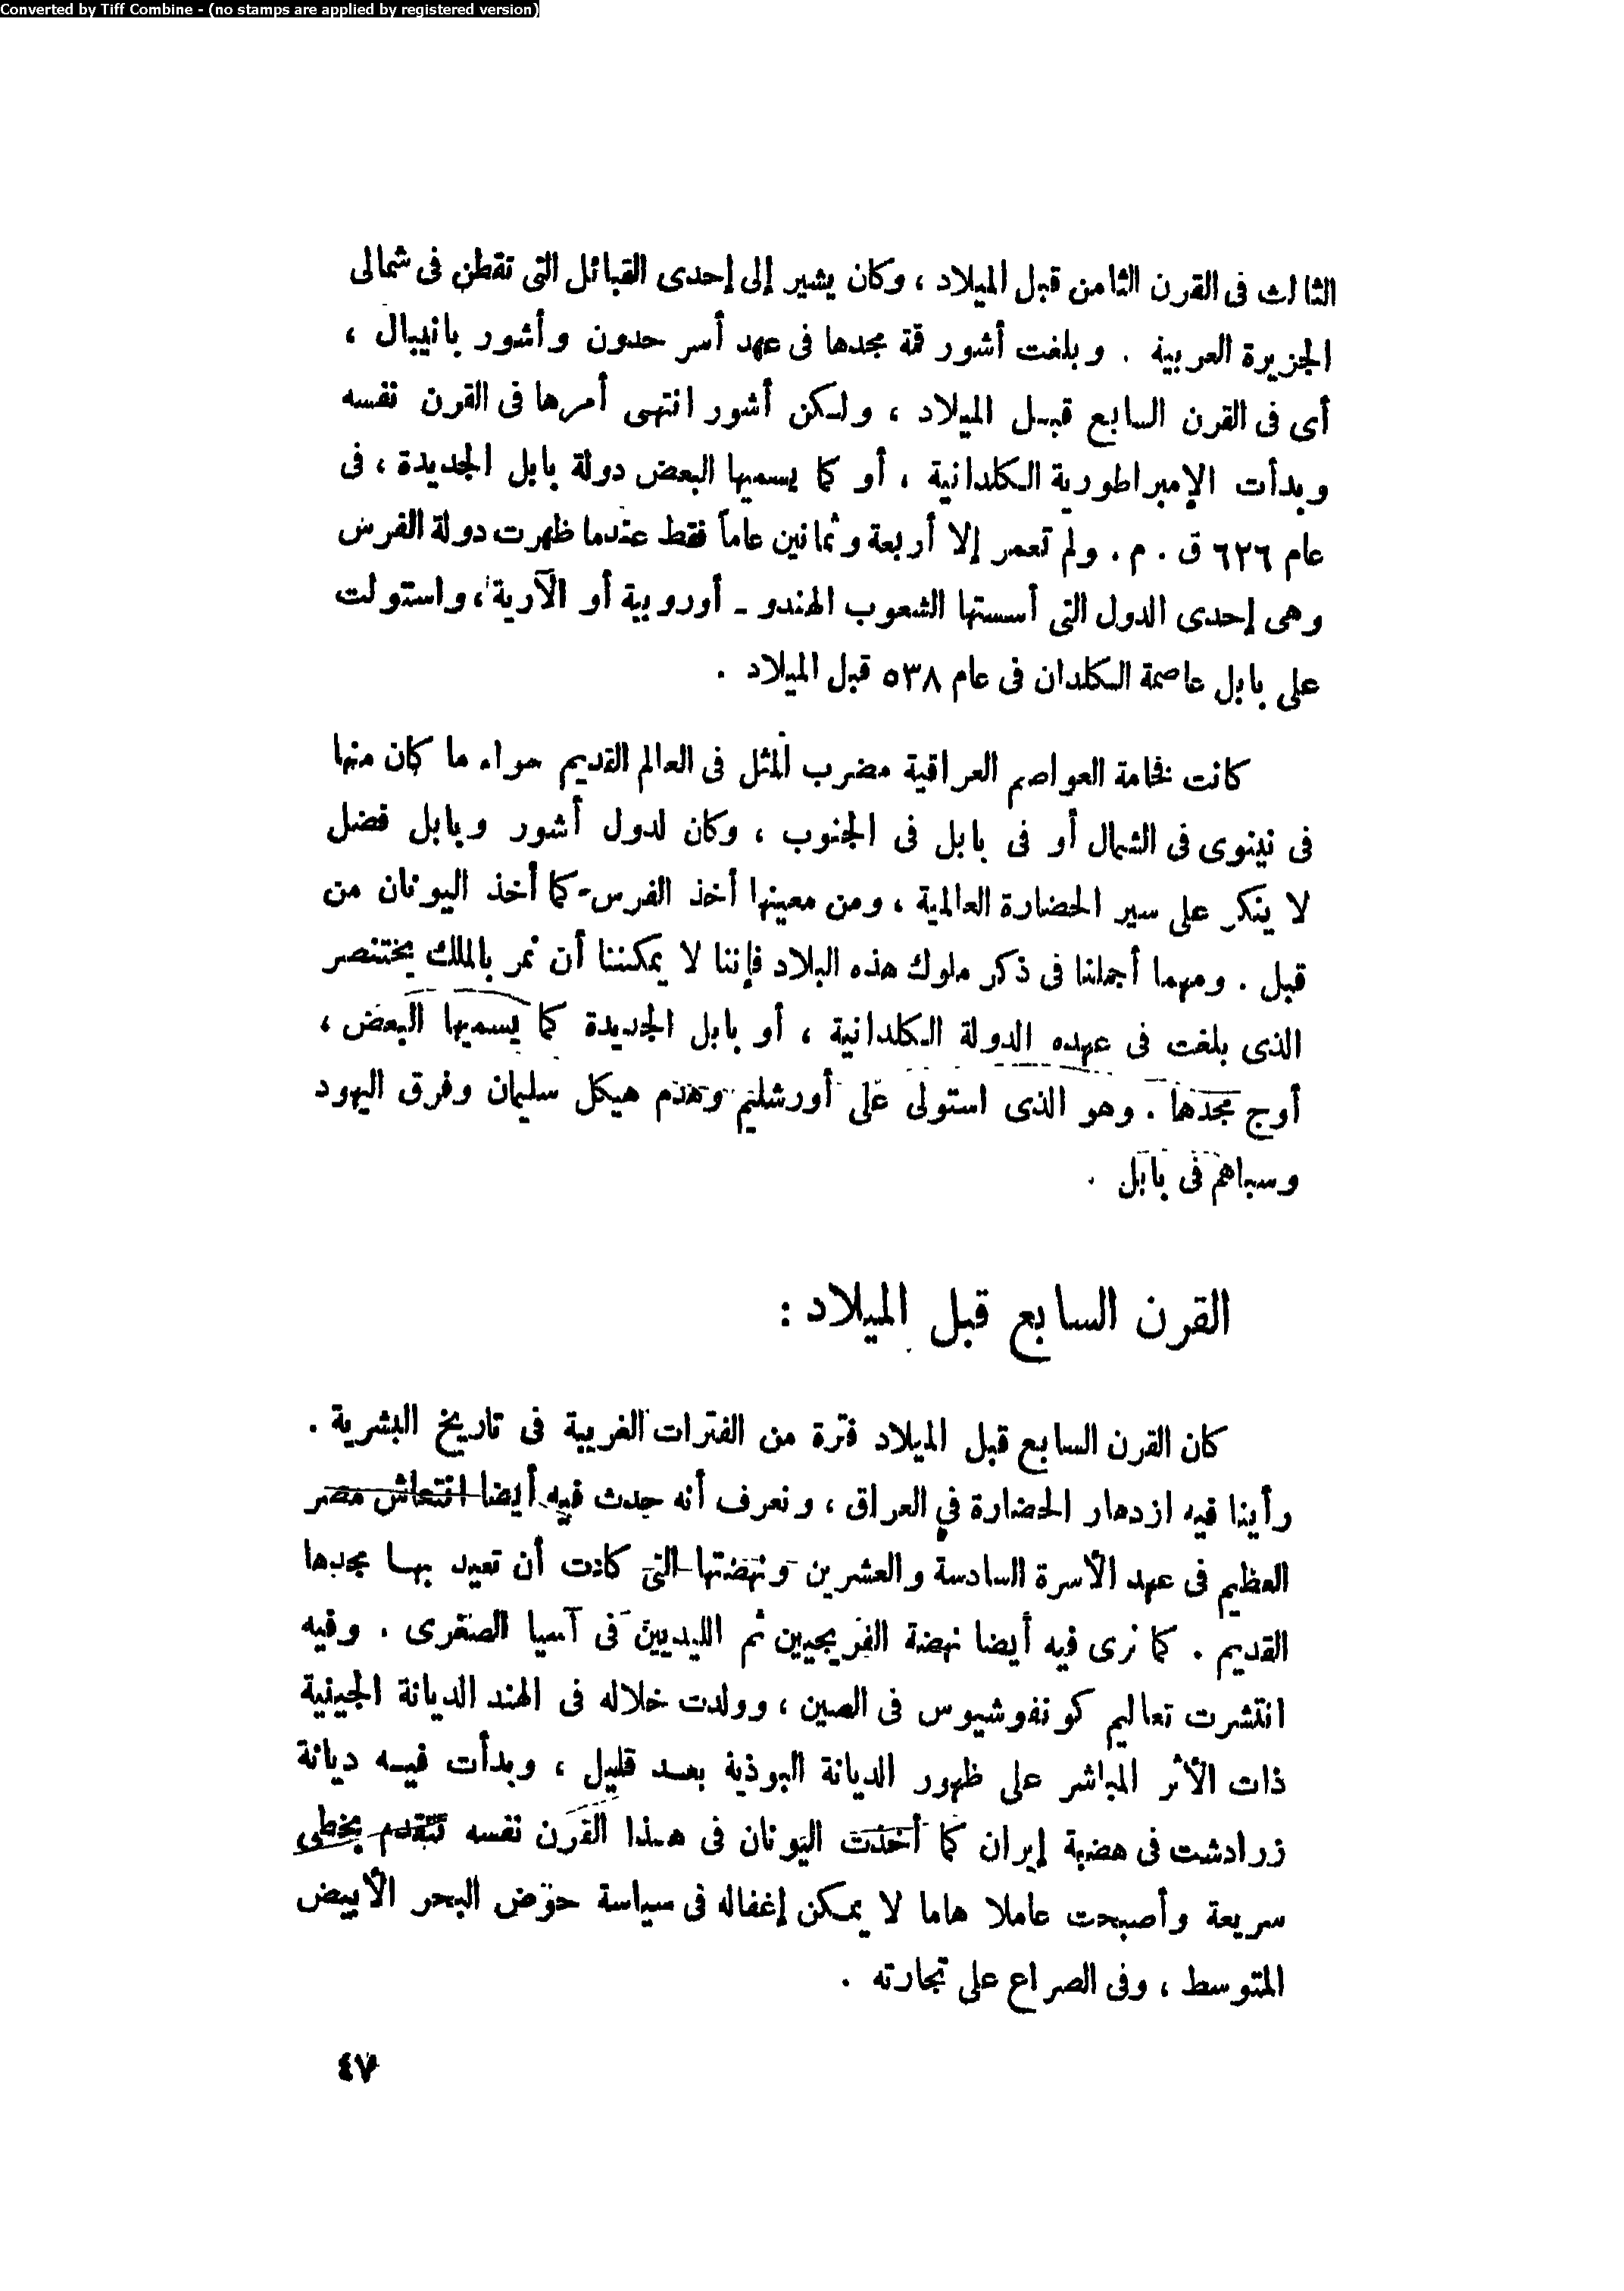 Converted by Tiff Combine - (no stamps are applied by registered version)
الثالث فى القرن الثامن قبل الميلاد ، وكان يشير إلى إحدى القبائل التى تقطن فى شمالى
الجزيرة العربية . وبلغت أشور قمة مجدها فى عهد أسر حدون وأشور بانيبال ،
أى فى القرن السابع قبل الميلاد ، ولكن أشور انتهى أمرها فى القرن نفسه
وبدأت الإمبراطورية الكلدانية ، أو كما يسميها البعض دولة بابل الجديدة ، فى
عام ٦٢٦ ق . م . ولم تعمر إلا أربعة وثمانين عاماً فقط عندما ظهرت دولة الفرس
وهى إحدى الدول التى أسستها الشعوب الهندو - أوروبية أو الآرية ، واستولت
على بابل عاصمة الكلدان فى عام ٥٣٨ قبل الميلاد .
كانت فخامة العواصم العراقية مضرب المثل فى العالم القديم سواء ما كان منها
فى نينوى فى الشمال أو فى بابل فى الجنوب ، وكان لدول أشور وبابل فضل
لا ينكر على سير الحضارة العالمية ، ومن معينها أخذ الفرس كما أخذ اليونان من
قبل . ومهما أجملنا فى ذكر ملوك هذه البلاد فإننا لا يمكننا أن نمر بالملك بختنصر
الذى بلغت فى عهده الدولة الكلدانية ، أو بابل الجديدة كما يسميها البعض ،
أوج مجدها . وهو الذى استولى على أورشليم وهدم هيكل سليمان وفرق اليهود
وسباهم فى بابل .
القرن السابع قبل الميلاد :
كان القرن السابع قبل الميلاد فترة من الفترات الغريبة فى تاريخ البشرية .
رأينا فيه ازدهار الحضارة في العراق ، ونعرف أنه حدث فيه أيضا انتعاش مصر
العظيم فى عهد الأسرة السادسة والعشرين ونهضتها التى كادت أن تعيد بها مجدها
القديم . كما نرى فيه أيضا نهضة الفريجيين ثم الليديين فى آسيا الصغرى . وفيه
انتشرت تعاليم كونفوشيوس فى الصين ، وولدت خلاله فى الهند الديانة الجينية
ذات الأثر المباشر على ظهور الديانة البوذية بعد قليل ، وبدأت فيه ديانة
زرادشت فى هضبة إيران كما أخذت اليونان فى هذا القرن نفسه تتقدم بخطى
سريعة وأصبحت عاملا هاما لا يمكن إغفاله فى سياسة حوض البحر الأبيض
المتوسط ، وفى الصراع على تجارته .
٤٧